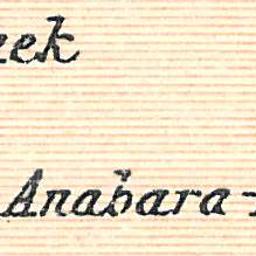 ek
Anabara-